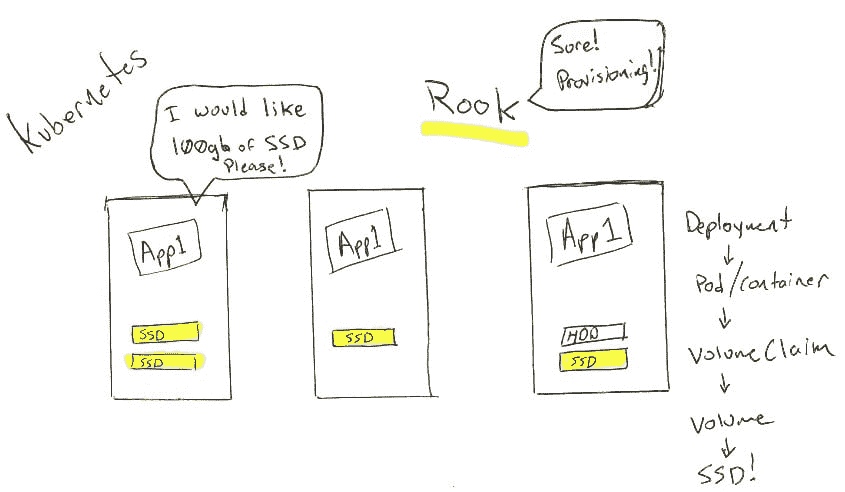 Kubernetes
I would like
100gb of SSD
Please!
Rook
Sure!
Provisioning!
App1
SSD
SSD
App1
SSD
App1
HDD
SSD
Deployment
↓
Pod/container
↓
Volume Claim
↓
Volume
↓
SSD!